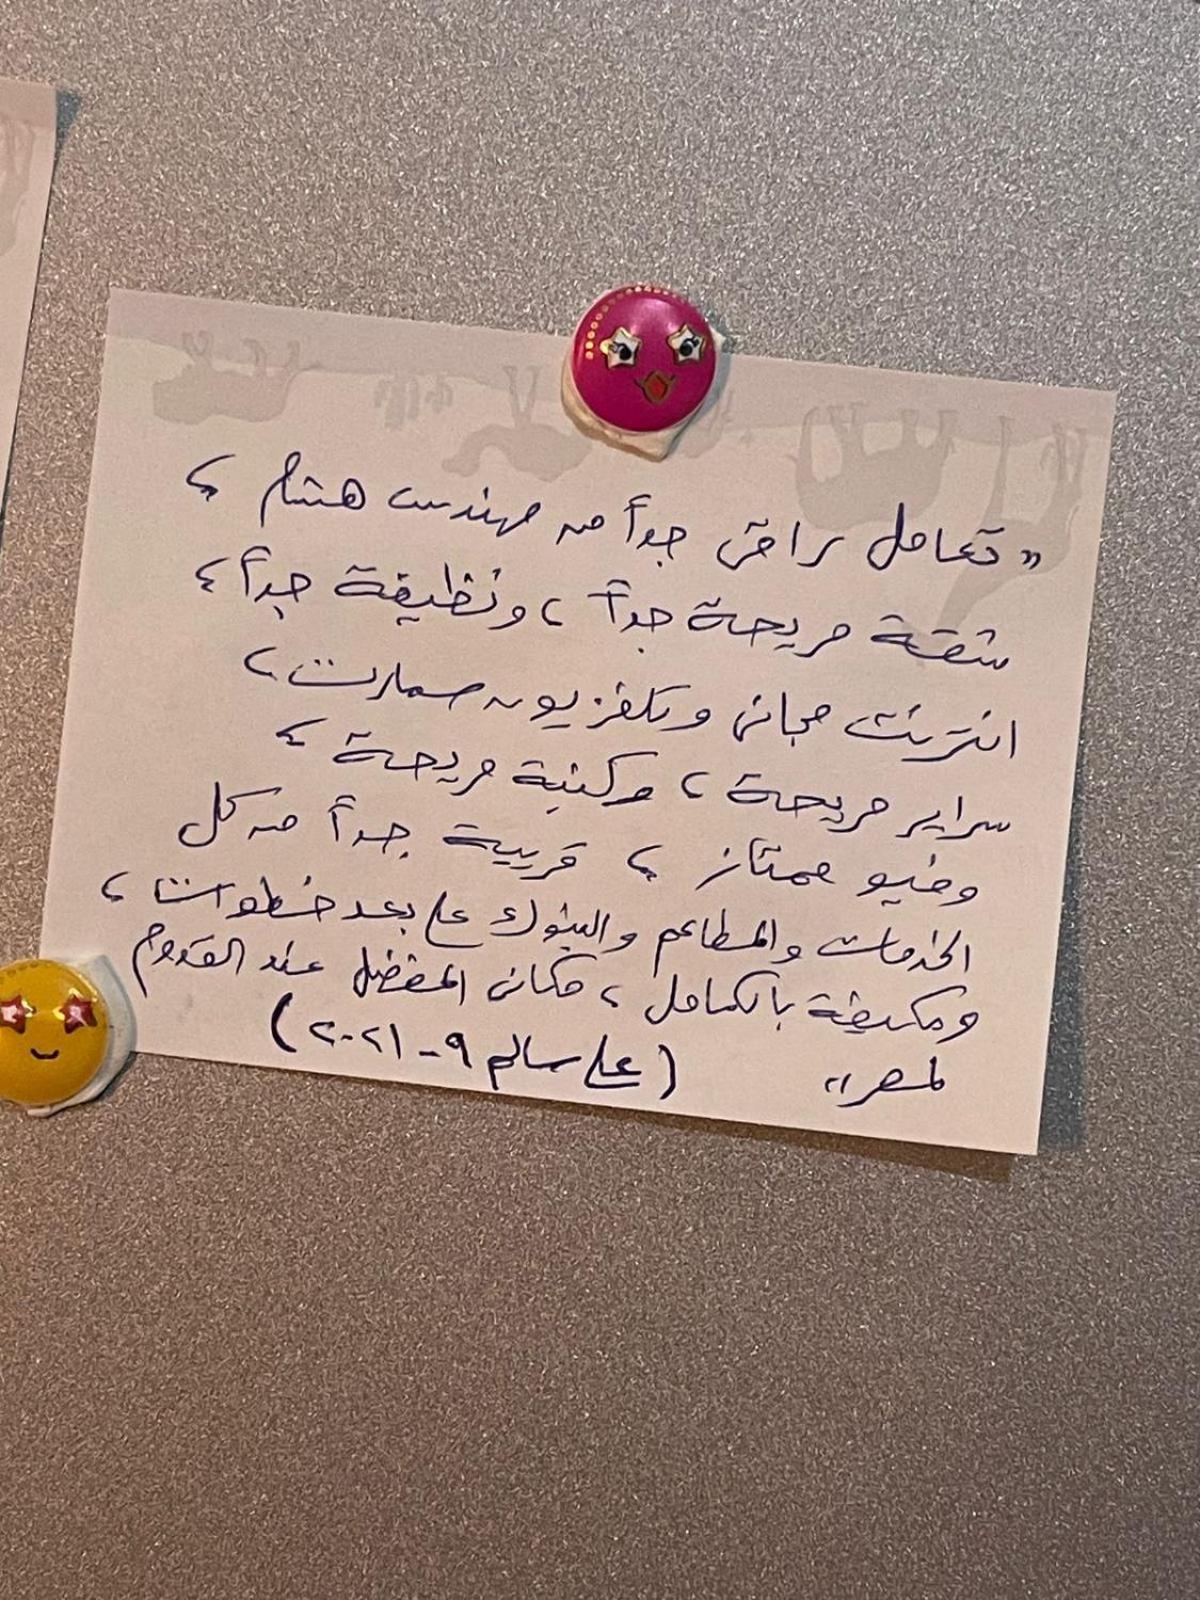 "تعامل راقى جداً من مهندس هشام ،
شقة مريحة جداً ، ونظيفة جداً ،
انترنت مجانى وتلفزيون سمارت ،
سراير مريحة ، وكنبة مريحة ،
وفيو ممتاز ، قريبة جداً من كل
الخدمات والمطاعم والبنوك على بعد خطوات ،
ومكيفة بالكامل ، مكانى المفضل عند القدوم
لمصر" (على سالم ٩-٢٠٢١)